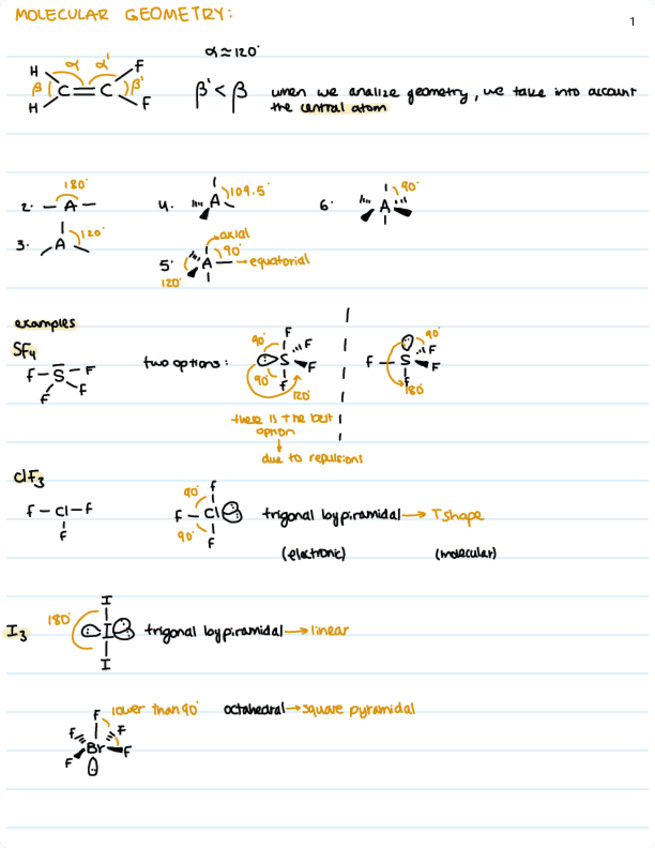 MOLECULAR GEOMETRY:
1
α ≈ 120°
H α α' F
β C = C β'
H F
β' < β when we analize geometry, we take into account
the central atom
180°
2. – A –
4. A 109.5°
6. A 90°
3. A 120°
axial
90°
5° A – equatorial
120°
examples
SF4
F – S – F
F F
two options:
F
90° F
S F
90° F
120°
90°
F
F – S F
F
180°
there is the best
option
due to repulsions
ClF3
F – Cl – F
F
90° F
F – Cl
90° F
trigonal bypiramidal → T shape
(electronic) (molecular)
I3
180°
I
I
I
trigonal bypiramidal → linear
F lower than 90° octahedral → square pyramidal
F F
Br F
F